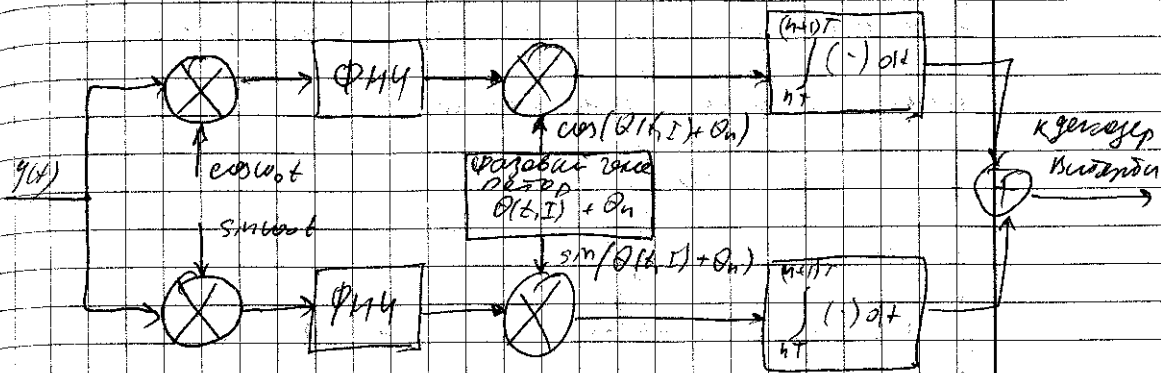 y(t)
cosω₀t
sinω₀t
ФНЧ
ФНЧ
cos(θ(t,I)+θn)
Фазовый гене
ратор
θ(t,I) + θn
sin(θ(t,I)+θn)
(n+1)T
∫ (·) dt
nT
(n+1)T
∫ (·) dt
nT
+
к декодер
Витерби